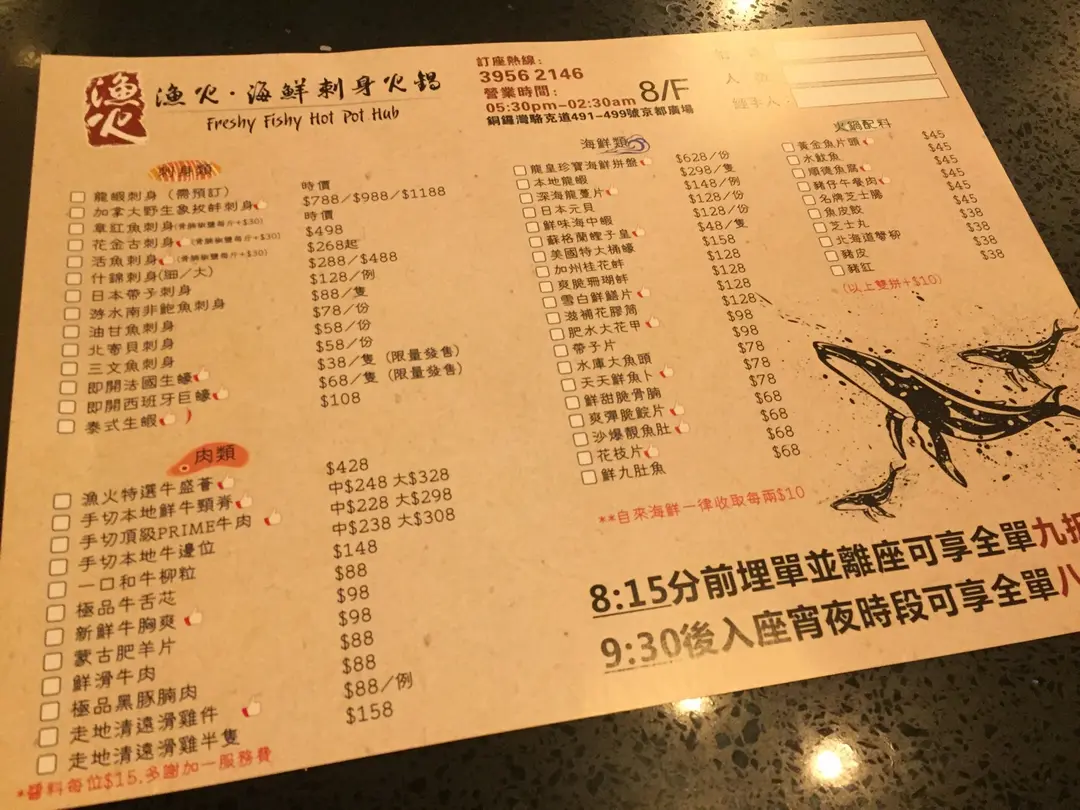 漁火
漁火·海鮮刺身火鍋
Freshy Fishy Hot Pot Hub
訂座熱線:
3956 2146
營業時間:
05:30pm-02:30am 8/F
銅鑼灣駱克道491-499號京都廣場
經手人:
刺身類
龍蝦刺身(需預訂) 時價
加拿大野生象拔蚌刺身 $788/$988/$1188
章紅魚刺身 時價
花金古刺身 $498
活魚刺身 $268起
什錦刺身(細/大) $288/$488
日本帶子刺身 $128/例
游水南非鮑魚刺身 $88/隻
油甘魚刺身 $78/份
北寄貝刺身 $58/份
三文魚刺身 $58/份
即開法國生蠔 $38/隻(限量發售)
即開西班牙巨蠔 $68/隻(限量發售)
泰式生蝦 $108
肉類
漁火特選牛盛薈 $428
手切本地鮮牛頸脊 中$248 大$328
手切頂級PRIME牛肉 中$228 大$298
手切本地牛邊位 中$238 大$308
一口和牛柳粒 $148
極品牛舌芯 $88
新鮮牛胸爽 $98
蒙古肥羊片 $98
鮮滑牛肉 $88
極品黑豚腩肉 $88
走地清遠滑雞件 $88/例
走地清遠滑雞半隻 $158
*醬料每位$15.多謝加一服務費
海鮮類
龍皇珍寶海鮮拼盤 $628/份
本地龍蝦 $298/隻
深海龍躉片 $148/例
日本元貝 $128/份
鮮味海中蝦 $128/份
蘇格蘭蟶子皇 $48/隻
美國特大桶蠔 $158
加州桂花蚌 $128
爽脆珊瑚蚌 $128
雪白鮮鱔片 $128
滋補花膠筒 $128
肥水大花甲 $98
帶子片 $98
水庫大魚頭 $78
天天鮮魚卜 $78
鮮甜脆骨腩 $78
爽彈脆鯇片 $68
沙爆靚魚肚 $68
花枝片 $68
鮮九肚魚 $68
**自來海鮮一律收取每兩$10
火鍋配料
黃金魚片頭 $45
水魷魚 $45
順德魚腐 $45
豬仔午餐肉 $45
名牌芝士腸 $45
魚皮餃 $45
芝士丸 $38
北海道帶柳 $38
豬皮 $38
豬紅 $38
(以上雙拼+$10)
8:15分前埋單並離座可享全單九折
9:30後入座宵夜時段可享全單八